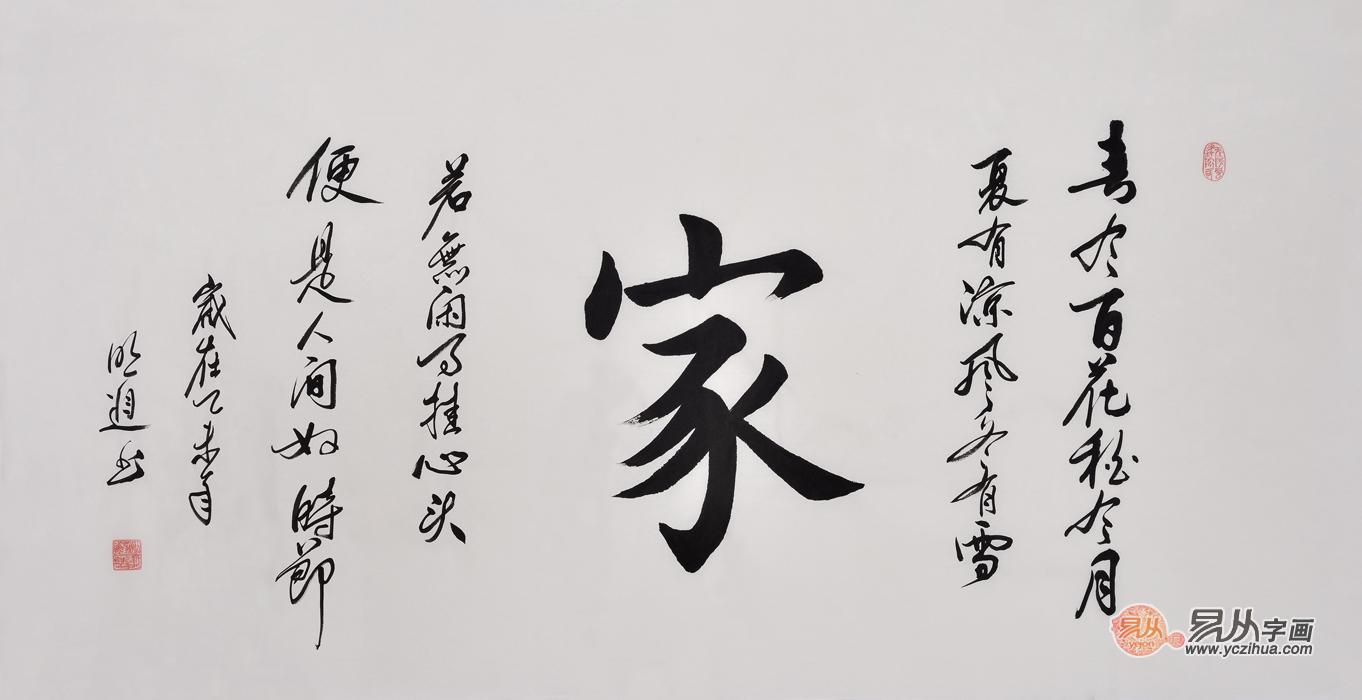 春有百花秋有月
夏有涼風冬有雪
家
若無闲事挂心头
便是人间好時節
歲在乙未年
书
易从
易从字画
www.yczihua.com